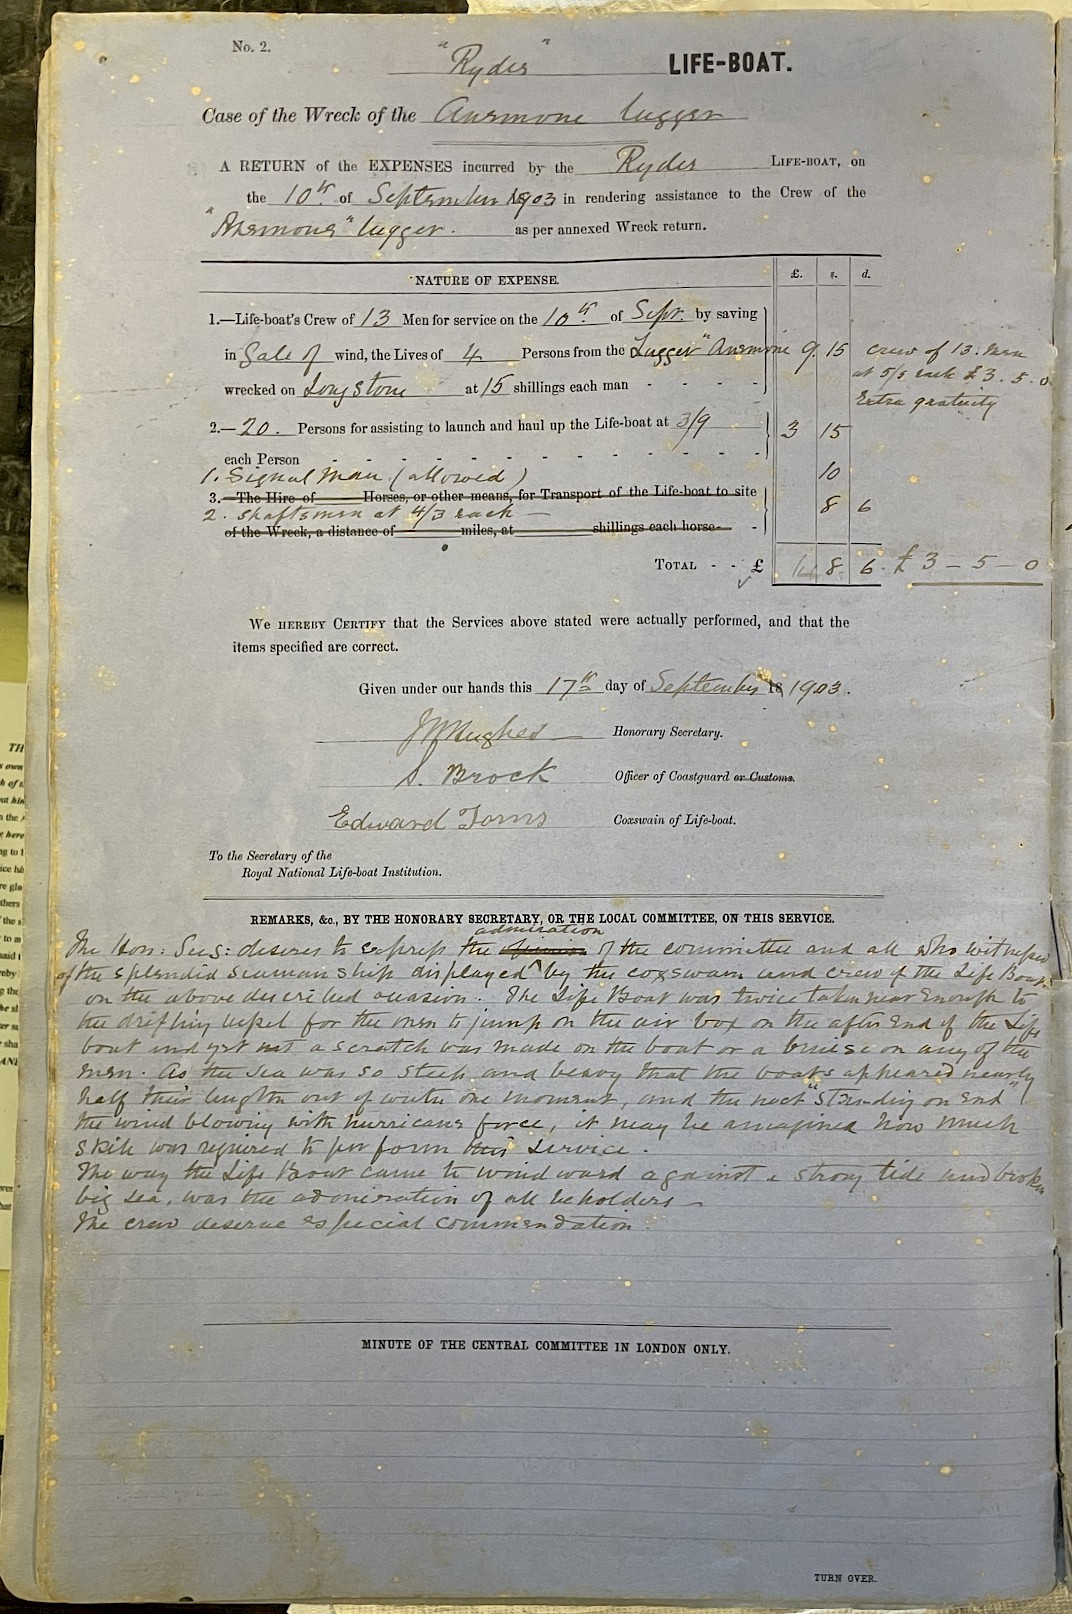 No. 2.
"Ryder" LIFE-BOAT.
Case of the Wreck of the Anemone lugger
A RETURN of the EXPENSES incurred by the Ryder LIFE-BOAT, on
the 10th of September 1903 in rendering assistance to the Crew of the
"Anemone" lugger. as per annexed Wreck return.
NATURE OF EXPENSE. £. s. d.
1.—Life-boat's Crew of 13 Men for service on the 10th of Sept. by saving
in Gale of wind, the Lives of 4 Persons from the Lugger "Anemone 9. 15 crew of 13. men
at 5/s each £3. 5. 0
wrecked on Longstone at 15 shillings each man - - - -
Extra gratuity
2.—20. Persons for assisting to launch and haul up the Life-boat at 3/9 3 15
each Person - - - - - - - - - - - -
1. Signal Man (allowed) 10
3.—The Hire of Horses, or other means, for Transport of the Life-boat to site
2. shaftsmen at 4/3 each — 8 6
of the Wreck, a distance of miles, at shillings each horse- -
TOTAL - - £ 14 8. 6. £3 – 5 – 0
We HEREBY CERTIFY that the Services above stated were actually performed, and that the
items specified are correct.
Given under our hands this 17th day of September 18 1903.
Hughes Honorary Secretary.
S. Brock Officer of Coastguard or Customs.
Edward Toms Coxswain of Life-boat.
To the Secretary of the
Royal National Life-boat Institution.
REMARKS, &c., BY THE HONORARY SECRETARY, OR THE LOCAL COMMITTEE, ON THIS SERVICE.
admiration
The Hon: Sec: desires to express the opinion of the committee and all who witnessed
of the splendid seamanship displayed by the coxswain and crew of the Life Boat
on the above described occasion. The Life Boat was twice taken near enough to
the drifting vessel for the men to jump on the air box on the after end of the Life
boat and yet not a scratch was made on the boat or a bruise on any of the
men. As the sea was so steep and heavy that the boats appeared nearly
half their length out of water one moment, and the next "standing on End"
the wind blowing with hurricane force, it may be imagined how much
skill was required to perform this service.
The way the Life Boat came to windward against a strong tide and broken
big sea, was the admiration of all beholders
The crew deserve especial commendation.
MINUTE OF THE CENTRAL COMMITTEE IN LONDON ONLY.
TURN OVER.